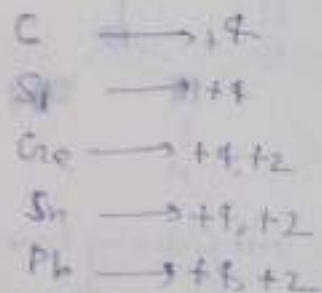 C → +4
Si → +4
Ge → +4, +2
Sn → +4, +2
Pb → +4, +2